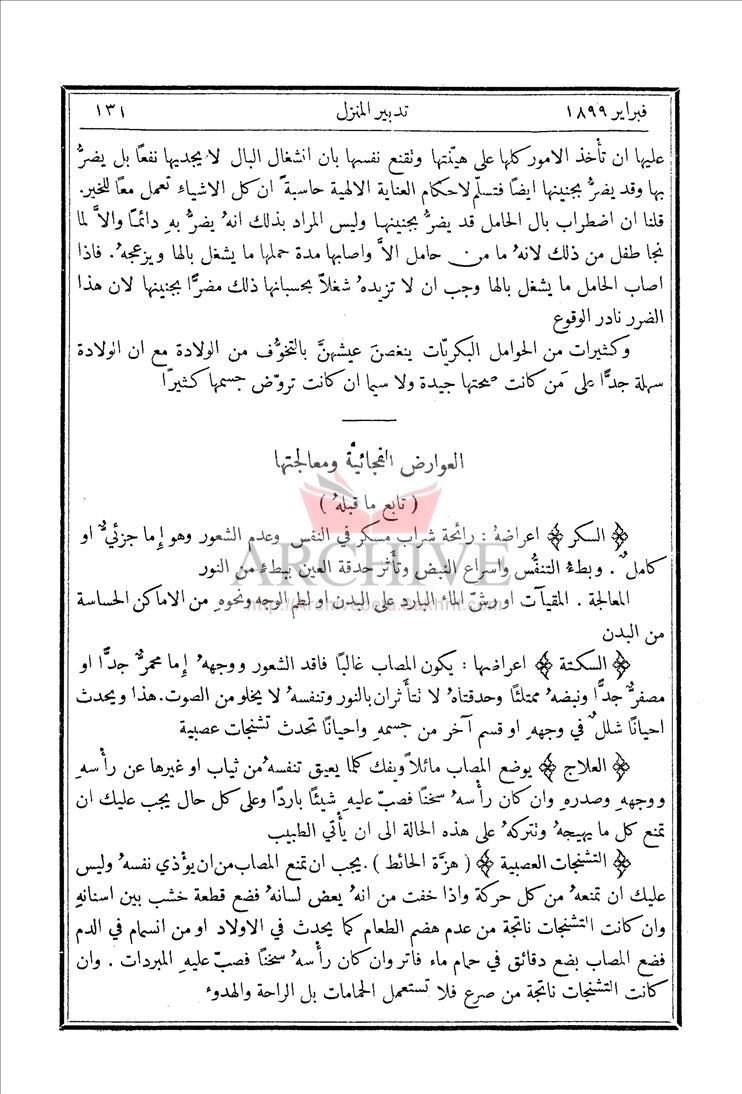 فبراير ١٨٩٩ تدبير المنزل ١٣١
عليها ان تأخذ الامور كلها على هينتها وتقنع نفسها بان انشغال البال لا يجديها نفعاً بل يضرُّ
بها وقد يضرُّ بجنينها ايضاً فتسلّم لاحكام العناية الالهية حاسبةً ان كل الاشياء تعمل معاً للخير.
قلنا ان اضطراب بال الحامل قد يضرُّ بجنينها وليس المراد بذلك انهُ يضرُّ بهِ دائماً والاَّ لما
نجا طفل من ذلك لانهُ ما من حامل الاَّ واصابها مدة حملها ما يشغل بالها ويزعجهُ. فاذا
اصاب الحامل ما يشغل بالها وجب ان لا تزيدهُ شغلاً بحسبانها ذلك مضرًّا بجنينها لان هذا
الضرر نادر الوقوع
وكثيرات من الحوامل البكريّات ينغصنَ عيشهنَّ بالتخوُّف من الولادة مع ان الولادة
سهلة جدًّا على مَن كانت صحتها جيدة ولا سيما ان كانت تروّض جسمها كثيراً
العوارض الفجائية ومعالجتها
( تابع ما قبلهُ )
﴿ السكر ﴾ اعراضهُ : رائحة شراب مسكر في النفس وعدم الشعور وهو إما جزئيٌّ او
كاملٌ . وبطءُ التنفُّس واسراع النبض وتأثر حدقة العين ببطءٍ من النور
المعالجة . المقيآت او رشّ الماء البارد على البدن او لطم الوجه ونحوهِ من الاماكن الحساسة
من البدن
﴿ السكتة ﴾ اعراضها : يكون المصاب غالبًا فاقد الشعور ووجههُ إما محمرٌّ جدًّا او
مصفرٌّ جدًّا ونبضهُ ممتلئًا وحدقتاهُ لا نتأثران بالنور وتنفسهُ لا يخلو من الصوت. هذا ويحدث
احيانًا شللٌ في وجههِ او قسم آخر من جسمهِ واحيانًا تحدث تشنجات عصبية
﴿ العلاج ﴾ يوضع المصاب مائلاً ويفك كلما يعيق تنفسهُ من ثياب او غيرها عن رأسهِ
ووجههِ وصدرهِ وان كان رأسهُ سخنًا فصبّ عليهِ شيئًا باردًا وعلى كل حال يجب عليك ان
تمنع كل ما يهيجهُ ونتركهُ على هذه الحالة الى ان يأتي الطبيب
﴿ التشنجات العصبية ﴾ ( هزَّة الحائط ) . يجب ان تمنع المصاب من ان يوْذي نفسهُ وليس
عليك ان تمنعهُ من كل حركة واذا خفت من انهُ يعض لسانهُ فضع قطعة خشب بين اسنانهِ
وان كانت التشنجات ناتجة من عدم هضم الطعام كما يحدث في الاولاد او من انسمام في الدم
فضع المصاب بضع دقائق في حمام ماء فاتر وان كان رأسهُ سخنًا فصبّ عليهِ المبردات . وان
كانت التشنجات ناتجة من صرع فلا تستعمل الحمامات بل الراحة والهدوء
ARCHIVE